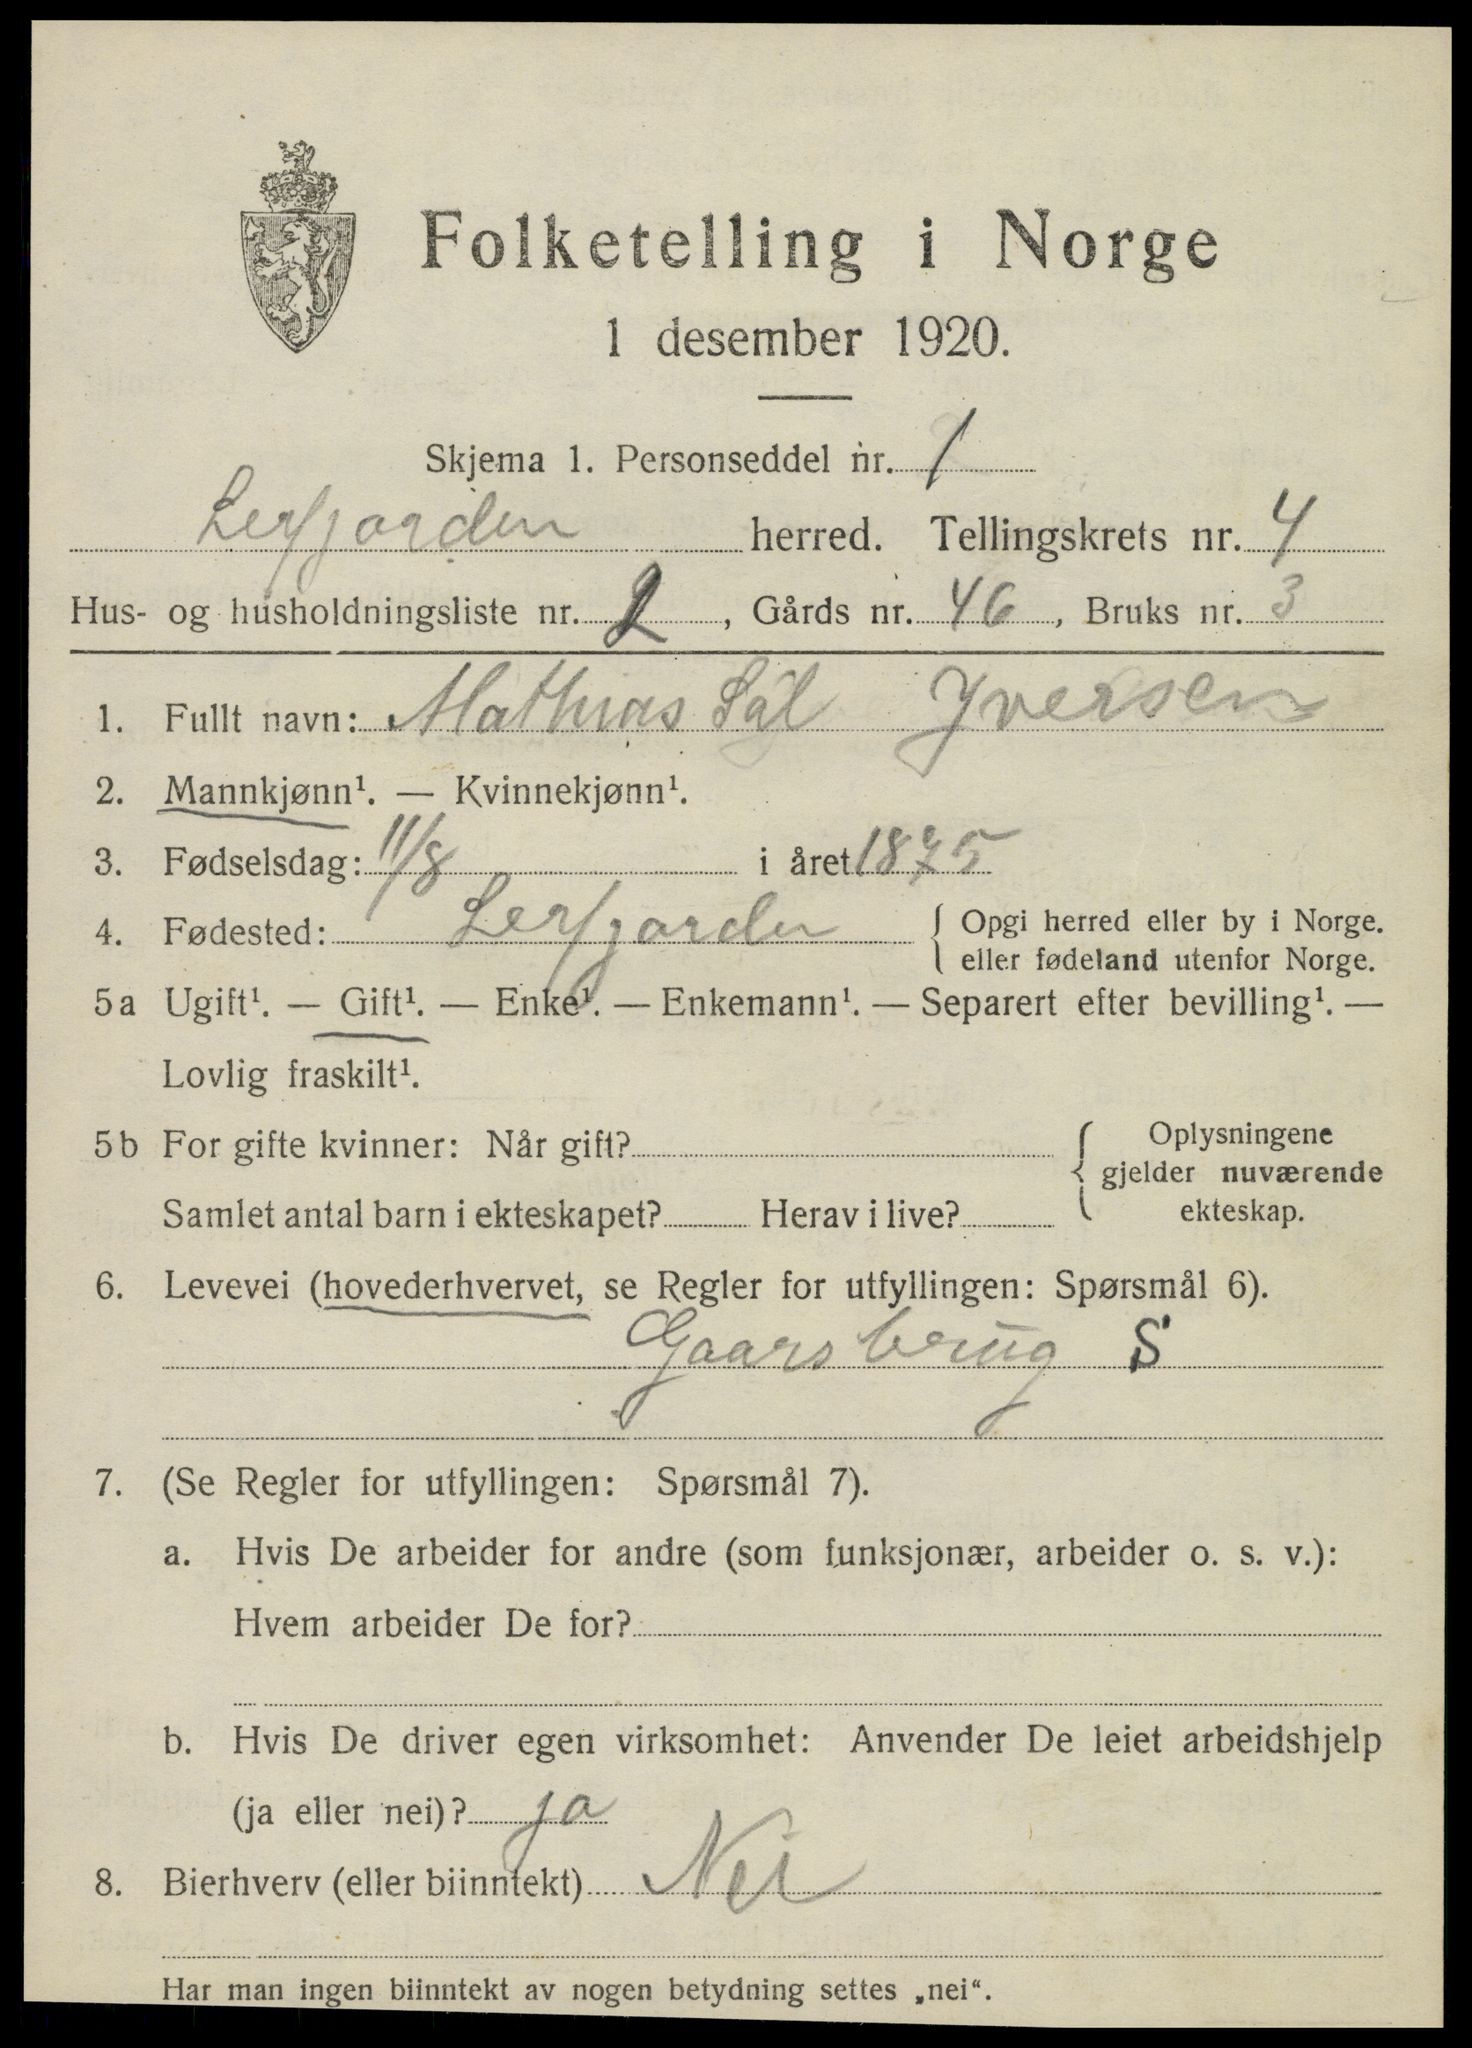 Folketelling i Norge
1 desember 1920.
Skjema 1. Personseddel nr. 1
Lerfjorden herred. Tellingskrets nr. 4
Hus- og husholdningsliste nr. 2, Gårds nr. 46, Bruks nr. 3
1. Fullt navn: Mathias Iversen
2. Mannkjønn¹. — Kvinnekjønn¹.
3. Fødselsdag: 11/8 i året 1875
4. Fødested: Lerfjorden { Opgi herred eller by i Norge.
eller fødeland utenfor Norge.
5a Ugift¹. — Gift¹. — Enke¹. — Enkemann¹. — Separert efter bevilling¹. —
Lovlig fraskilt¹.
5b For gifte kvinner: Når gift? { Oplysningene
gjelder nuværende
Samlet antal barn i ekteskapet? Herav i live? ekteskap.
6. Levevei (hovederhvervet, se Regler for utfyllingen: Spørsmål 6).
Gaarsbrug S
7. (Se Regler for utfyllingen: Spørsmål 7).
a. Hvis De arbeider for andre (som funksjonær, arbeider o. s. v.):
Hvem arbeider De for?
b. Hvis De driver egen virksomhet: Anvender De leiet arbeidshjelp
(ja eller nei)? ja
8. Bierhverv (eller biinntekt) Nei
Har man ingen biinntekt av nogen betydning settes „nei“.